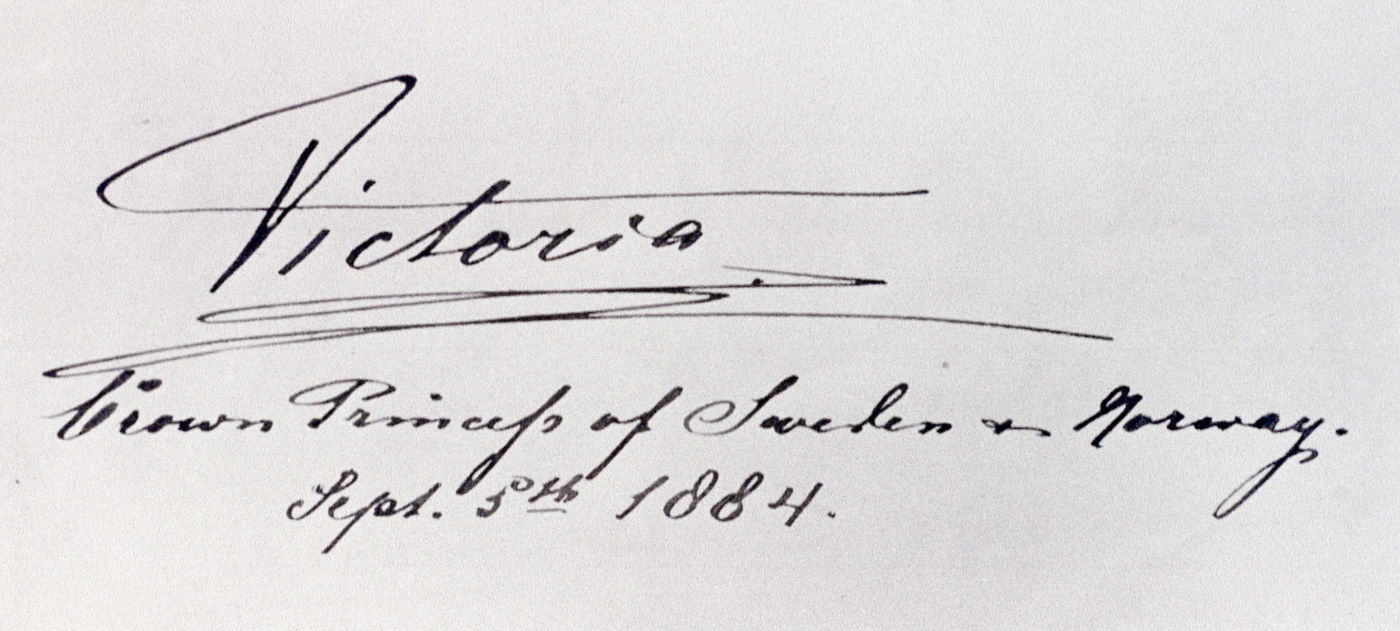 Victoria.
Crown Princess of Sweden & Norway.
Sept. 5th 1884.